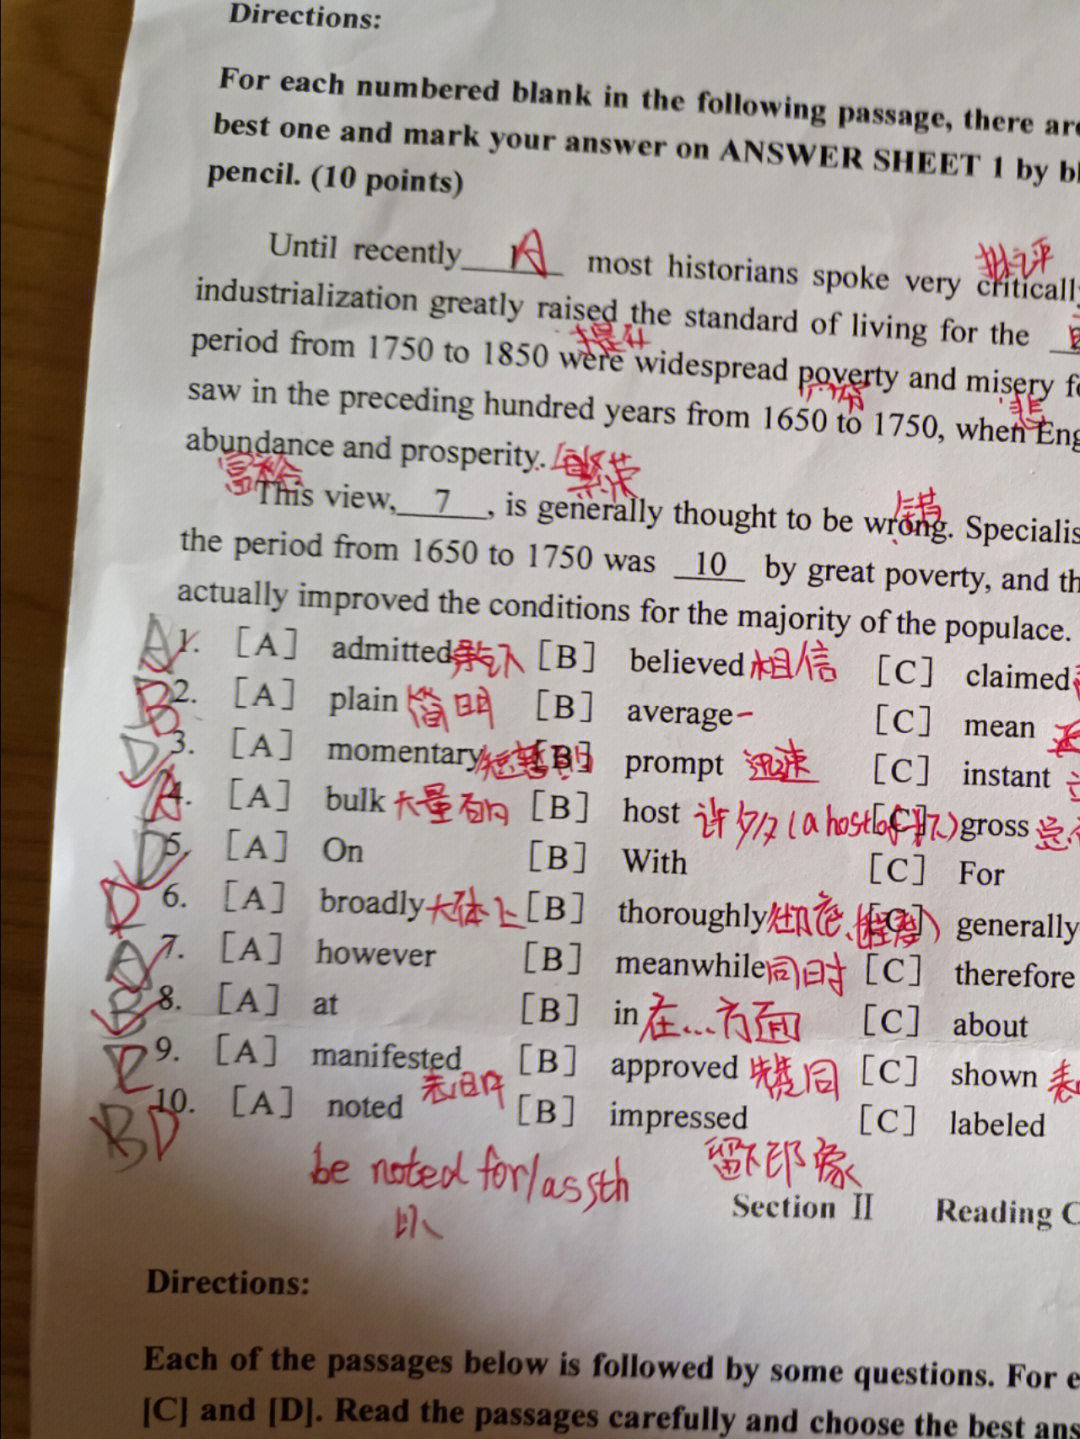 Directions:
For each numbered blank in the following passage, there are
best one and mark your answer on ANSWER SHEET 1 by bl
pencil. (10 points)
Until recently A most historians spoke very critically
批评
industrialization greatly raised the standard of living for the
提升
period from 1750 to 1850 were widespread poverty and misery fo
saw in the preceding hundred years from 1650 to 1750, when Eng
abundance and prosperity. 繁荣
富裕
This view, 7 , is generally thought to be wrong. Specialis
错
the period from 1650 to 1750 was 10 by great poverty, and th
actually improved the conditions for the majority of the populace.
A 1. [A] admitted 承认 [B] believed 相信 [C] claimed
B 2. [A] plain 简明 [B] average [C] mean
D 3. [A] momentary 短暂的 [B] prompt 迅速 [C] instant
A 4. [A] bulk 大量的 [B] host 许多 (a host of 加) [C] gross
D 5. [A] On [B] With [C] For
6. [A] broadly 大体上 [B] thoroughly 彻底、(程度) [C] generally
A 7. [A] however [B] meanwhile 同时 [C] therefore
B 8. [A] at [B] in 在...方面 [C] about
C 9. [A] manifested [B] approved 赞同 [C] shown 表
表明
B D 10. [A] noted [B] impressed [C] labeled
be noted for/as sth 留下印象
Section II Reading C
Directions:
Each of the passages below is followed by some questions. For e
[C] and [D]. Read the passages carefully and choose the best ans